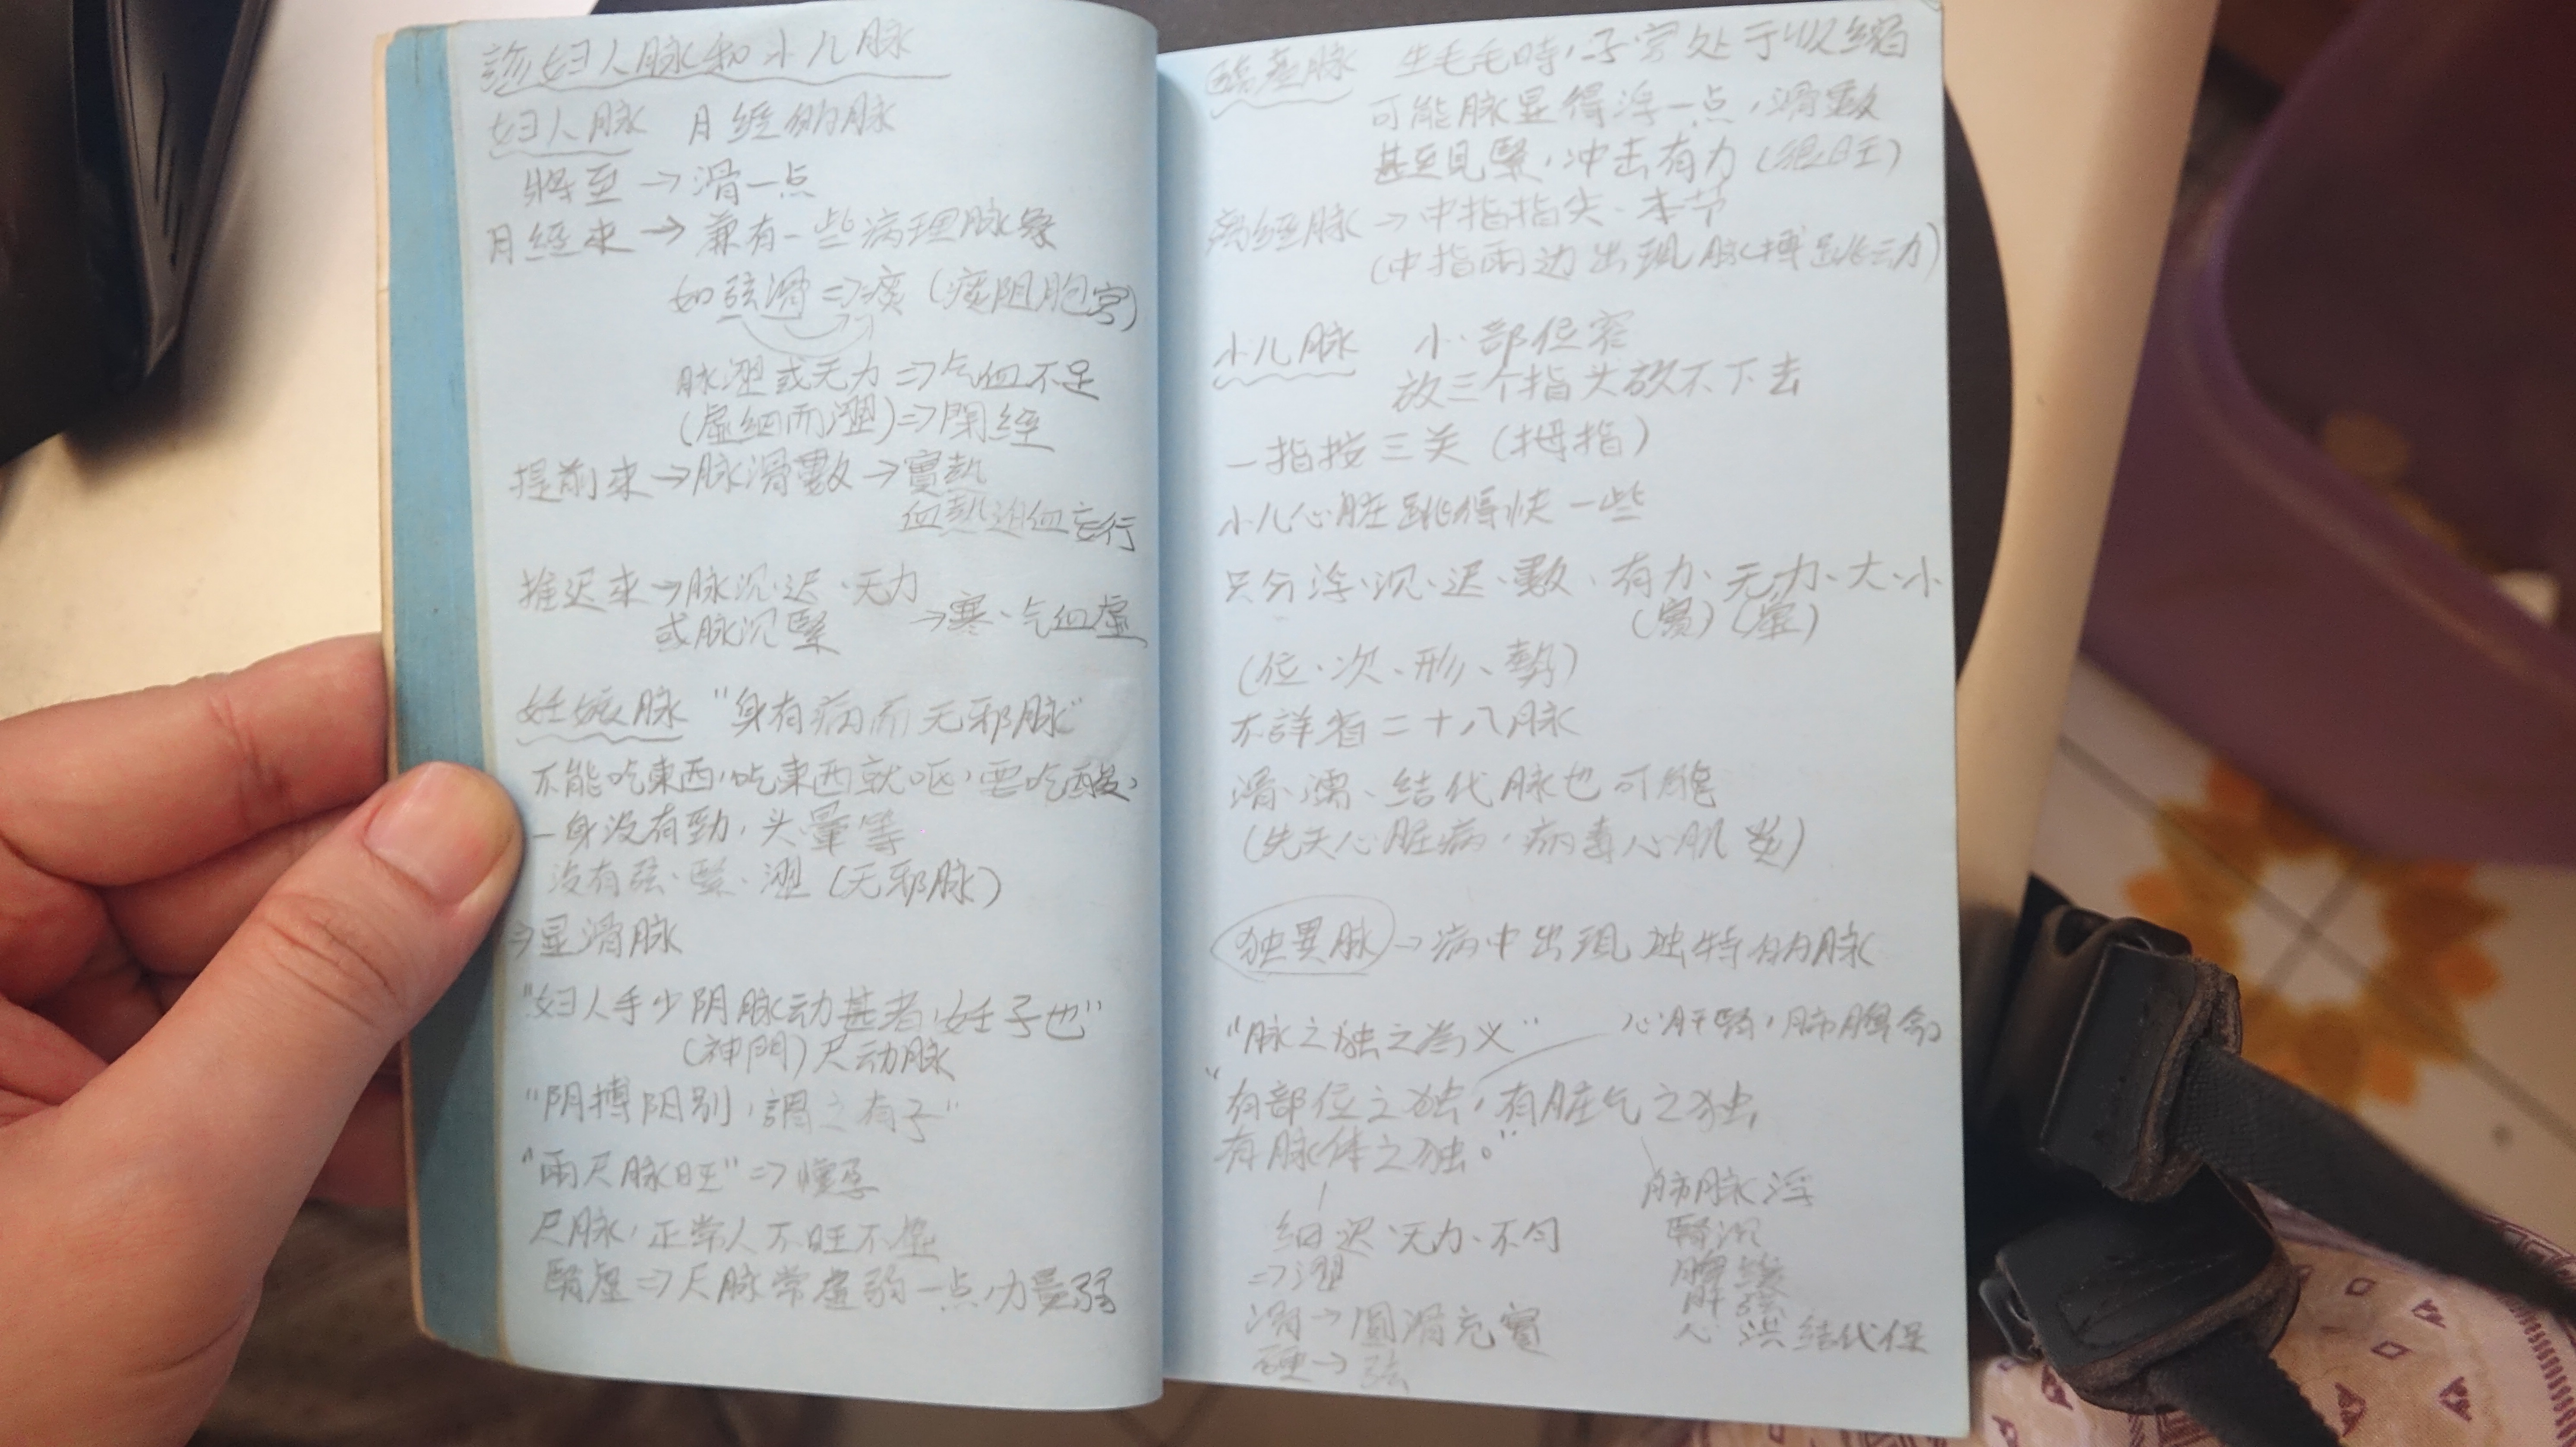 診妇人脉和小儿脉
妇人脉 月經的脉
將至→滑一点
月經来→兼有一些病理脉象
如弦滑⇒痰(痰阻胞宮)
脉澀或无力⇒气血不足
(虛細而澀)⇒閉經
提前来→脉滑數→實熱
血熱迫血妄行
推迟来→脉沉·迟·无力
或脉沉緊 →寒、气血虛
妊娠脉 "身有病而无邪脉"
不能吃東西,吃東西就呕,要吃酸,
一身没有勁,头暈等
没有弦·緊·澀(无邪脉)
⇒显滑脉
"妇人手少阴脉动甚者,妊子也"
(神門)尺动脉
"阴搏阳别,謂之有子"
"兩尺脉旺"⇒懷孕
尺脉,正常人不旺不虛
腎虛⇒尺脉常虛弱一点,力量弱
臨產脉 生毛毛時,子宮处于收縮
可能脉显得浮一点,滑數
甚至見緊,冲击有力(很旺)
离經脉→中指指尖·本节
(中指兩边出現脉搏跳动)
小儿脉 小·部位窄
放三个指头放不下去
一指按三关(拇指)
小儿心脏跳得快一些
只分浮·沉·迟·數、有力、无力、大·小
(實)(虛)
(位、次、形、勢)
不詳省二十八脉
滑、濡、結代脉也可能
(先天心脏病,病毒心肌炎)
独異脉→病中出現独特的脉
"脉之独之為义" 心肝腎,肺脾命
"有部位之独,有脏气之独,
有脉体之独。"
細迟·无力、不匀
⇒澀
滑→圓滑充實
硬→弦
肺脉浮
腎沉
脾緩
肝弦
心 洪結代促